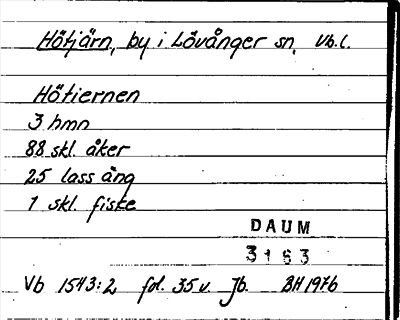 Hötjärn, by i Lövånger sn, Vb.l.
Hötiernen
3 hmn
88 skl. åker
25 lass äng
1 skl. fiske
DAUM
3163
Vb 1543:2 fol. 35v. Jb. BH 1976